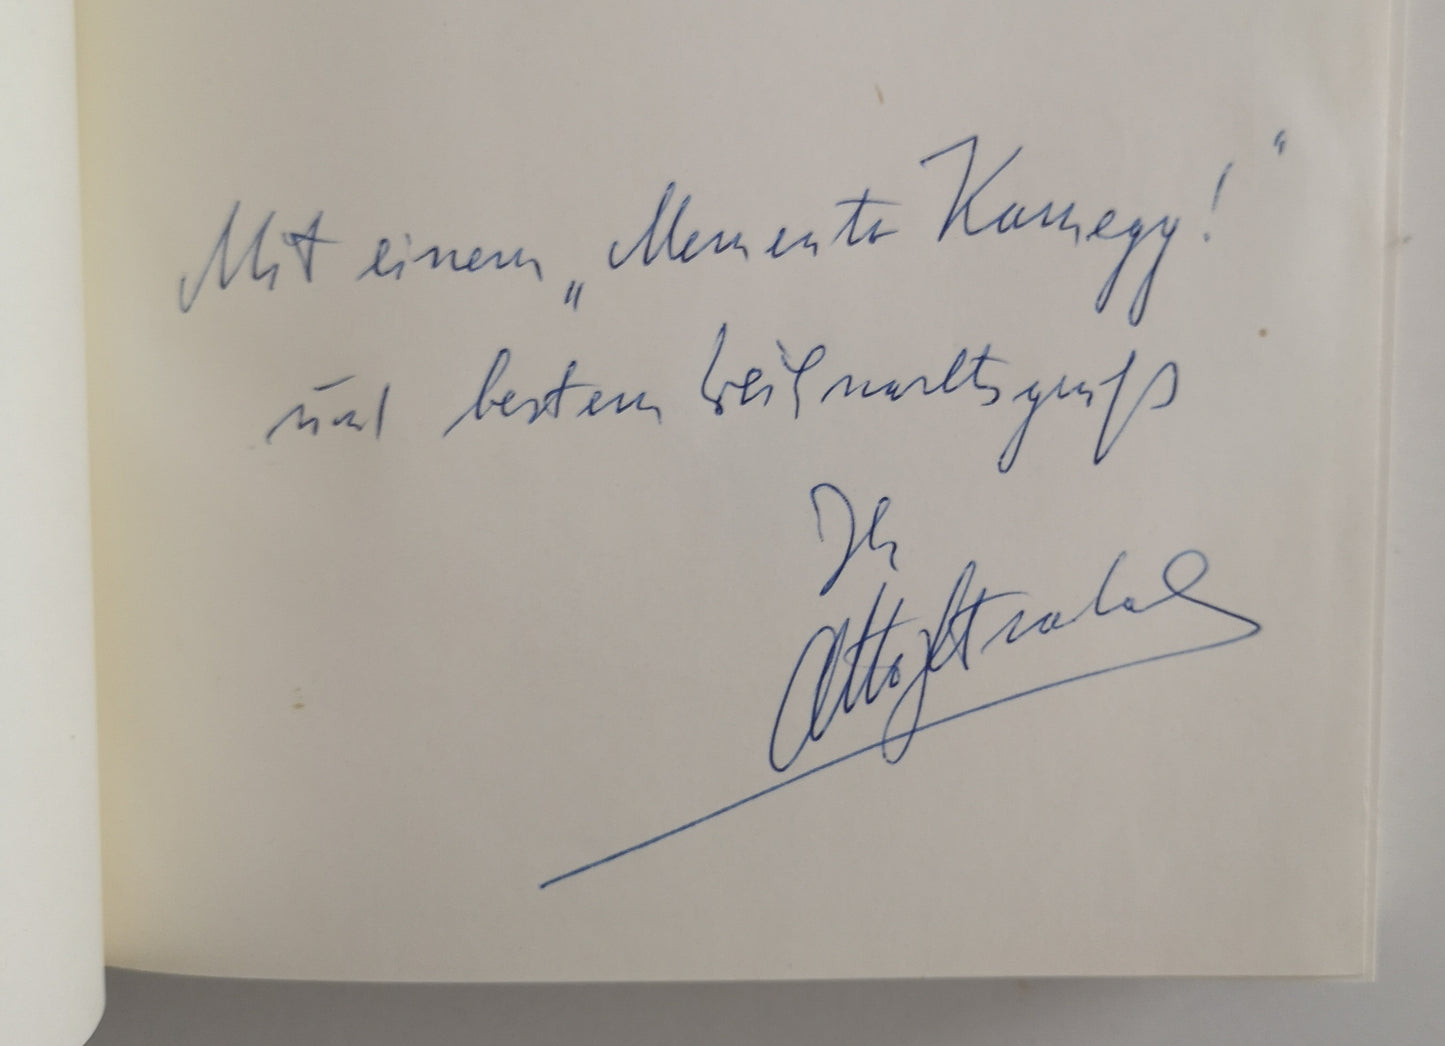 Mit einem „Memento Karnegy!“
und bestem Weihnachtsgruß
Ihr
Otto Strobel